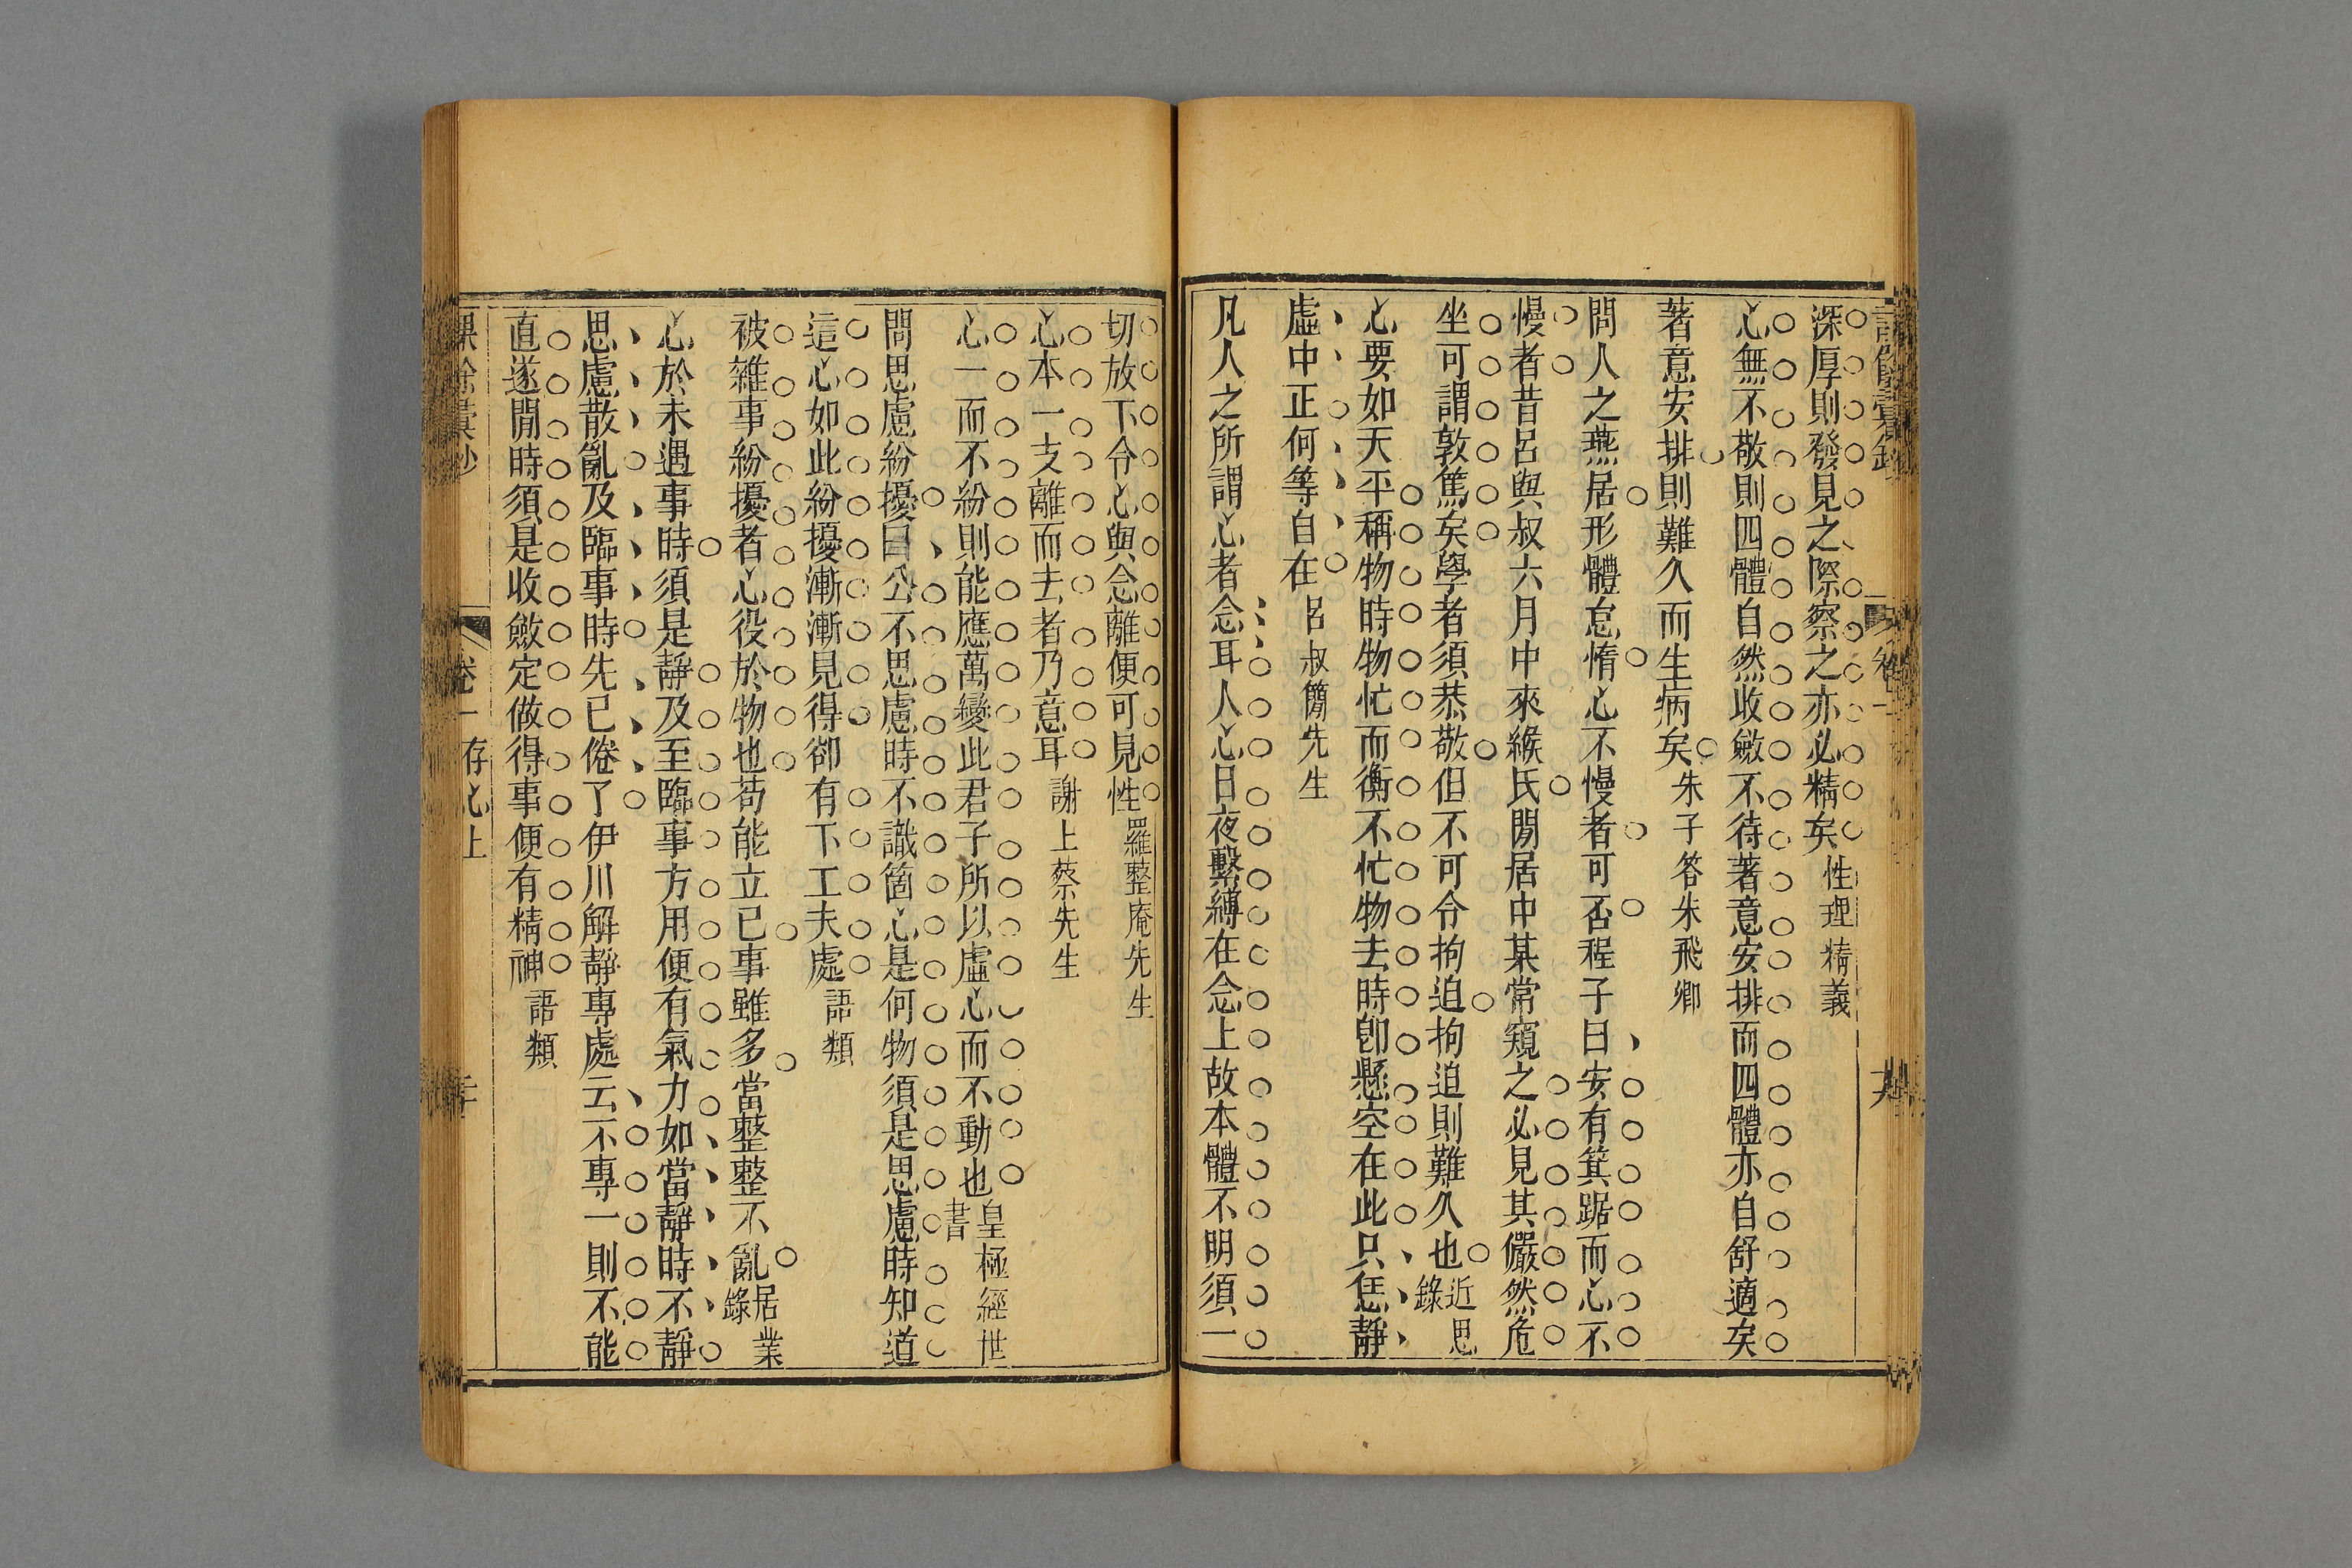 深厚則發見之際察之亦必精矣性理精義
心無不敬則四體自然收斂不待著意安排而四體亦自舒適矣
著意安排則難久而生病矣朱子答朱飛卿
問人之燕居形體怠惰心不慢者可否程子曰安有箕踞而心不
慢者昔呂與叔六月中來緱氏閒居中某常窺之必見其儼然危
坐可謂敦篤矣學者須恭敬但不可令拘迫拘迫則難久也近思錄
心要如天平稱物時物忙而衡不忙物去時卽懸空在此只恁靜
虛中正何等自在呂叔簡先生
凡人之所謂心者念耳人心日夜繫縛在念上故本體不明須一
切放下令心與念離便可見性羅整庵先生
心本一支離而去者乃意耳謝上蔡先生
心一而不紛則能應萬變此君子所以虛心而不動也皇極經世書
問思慮紛擾曰公不思慮時不識箇心是何物須是思慮時知道
這心如此紛擾漸漸見得卻有下工夫處語類
被雜事紛擾者心役於物也苟能立已事雖多當整整不亂居業錄
心於未遇事時須是靜及至臨事方用便有氣力如當靜時不靜
思慮散亂及臨事時先已倦了伊川解靜專處云不專一則不能
直遂閒時須是收斂定做得事便有精神語類
課餘彙鈔 卷一存心上